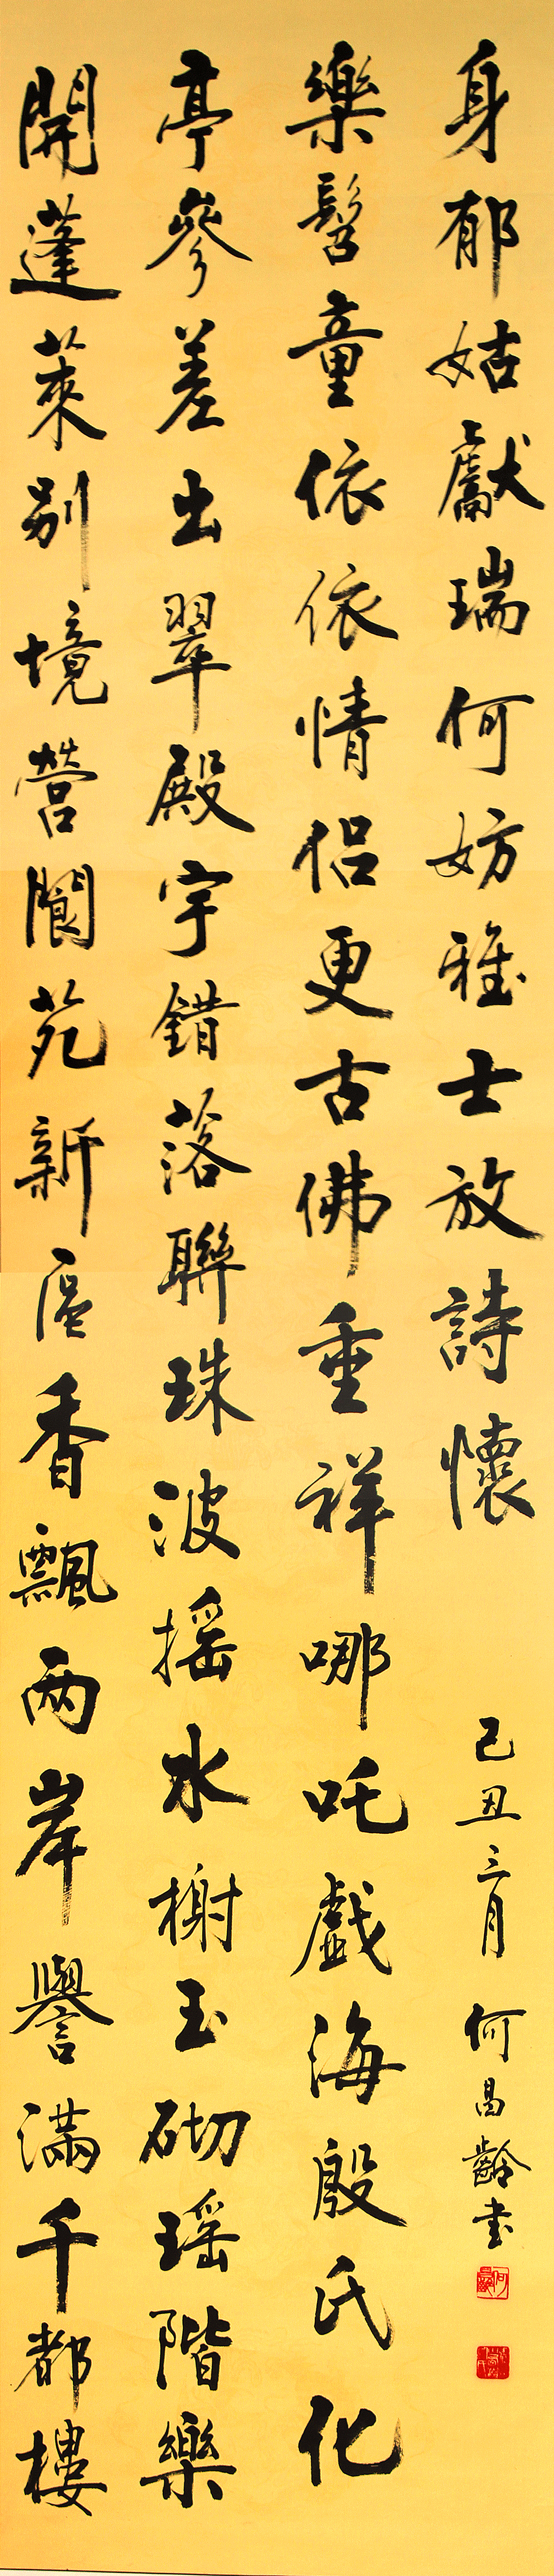 開蓬萊別境營閬苑新區香飄两岸譽滿千都樓
亭參差出翠殿宇錯落聯珠波搖水榭玉砌瑤階樂
樂髫童依依情侶更古佛重祥哪吒戲海殷氏化
身郁姑獻瑞何妨雅士放詩懷
己丑三月 何昌齡書